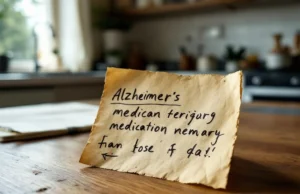 Alzheimer's
medican terigurg
medication nemary
fian fose f da!!